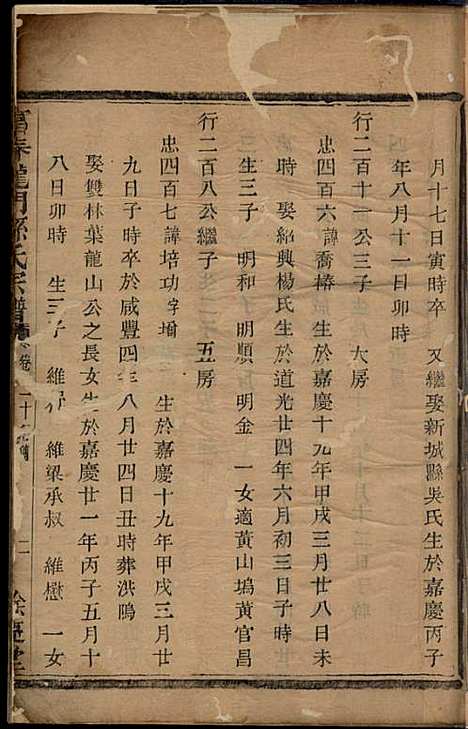 月十七日寅時卒　又繼娶新城縣吳氏生於嘉慶丙子
年八月十一日卯時
行二百十一公三子　大房
忠四百六諱喬椿　生於嘉慶十九年甲戌三月廿八日未
時　娶紹興楊氏生於道光廿四年六月初三日子時廿
生三子　明和　明順　明金　一女適黃山塢黃官昌
行二百八公繼子　五房
忠四百七諱培功字堉　生於嘉慶十九年甲戌三月廿
九日子時卒於咸豐四年八月廿四日丑時葬洪鳴
娶雙林葉龍山公之長女生於嘉慶廿一年丙子五月十
八日卯時　生三子　維　維梁承叔　維懋　一女
富春龍門孫氏宗譜　卷二十　餘慶堂